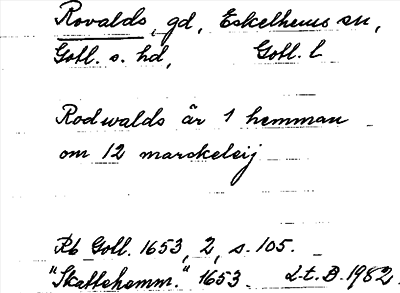 Rovalds, gd, Eskelhems sn,
Gotl. s. hd, Gotl. l
Rodwalds är 1 hemman
om 12 marckeleij
Rb Gotl. 1653, 2, s. 105.
"Skattehemm." 1653. L.t.B. 1982.